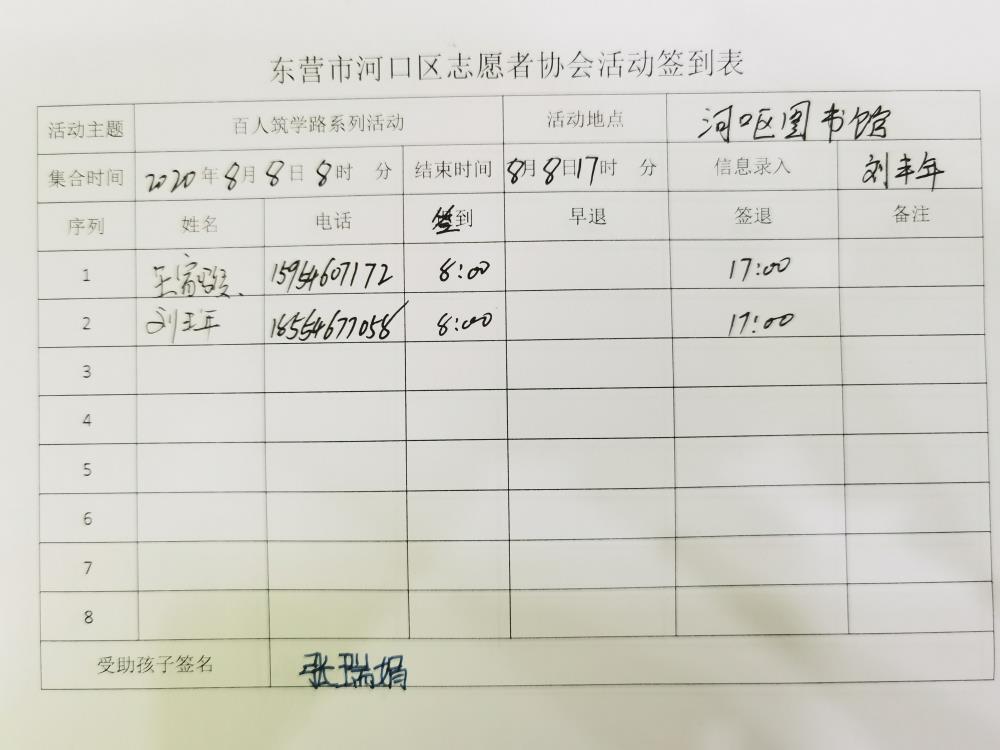 东营市河口区志愿者协会活动签到表
活动主题 百人筑学路系列活动 活动地点 河口区图书馆
集合时间 2020年8月8日8时 分 结束时间 8月8日17时 分 信息录入 刘丰年
序列 姓名 电话 签到 早退 签退 备注
1 王家 15954607172 8:00 17:00
2 刘丰年 18554677058 8:00 17:00
3
4
5
6
7
8
受助孩子签名 张瑞娟